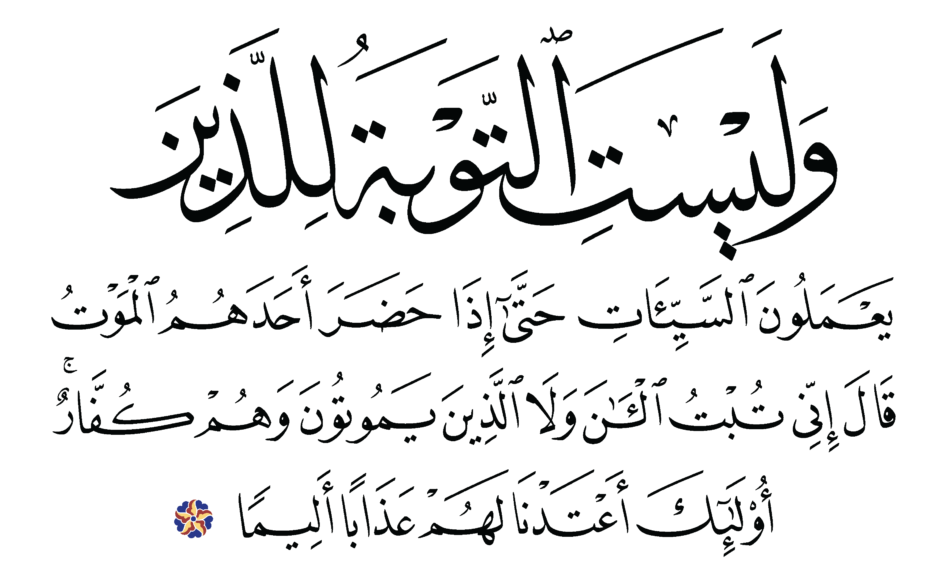 وَلَيْسَتِ ٱلتَّوْبَةُ لِلَّذِينَ
يَعْمَلُونَ ٱلسَّيِّـَٔاتِ حَتَّىٰٓ إِذَا حَضَرَ أَحَدَهُمُ ٱلْمَوْتُ
قَالَ إِنِّى تُبْتُ ٱلْـَٔـٰنَ وَلَا ٱلَّذِينَ يَمُوتُونَ وَهُمْ كُفَّارٌ ۚ
أُو۟لَـٰٓئِكَ أَعْتَدْنَا لَهُمْ عَذَابًا أَلِيمًا